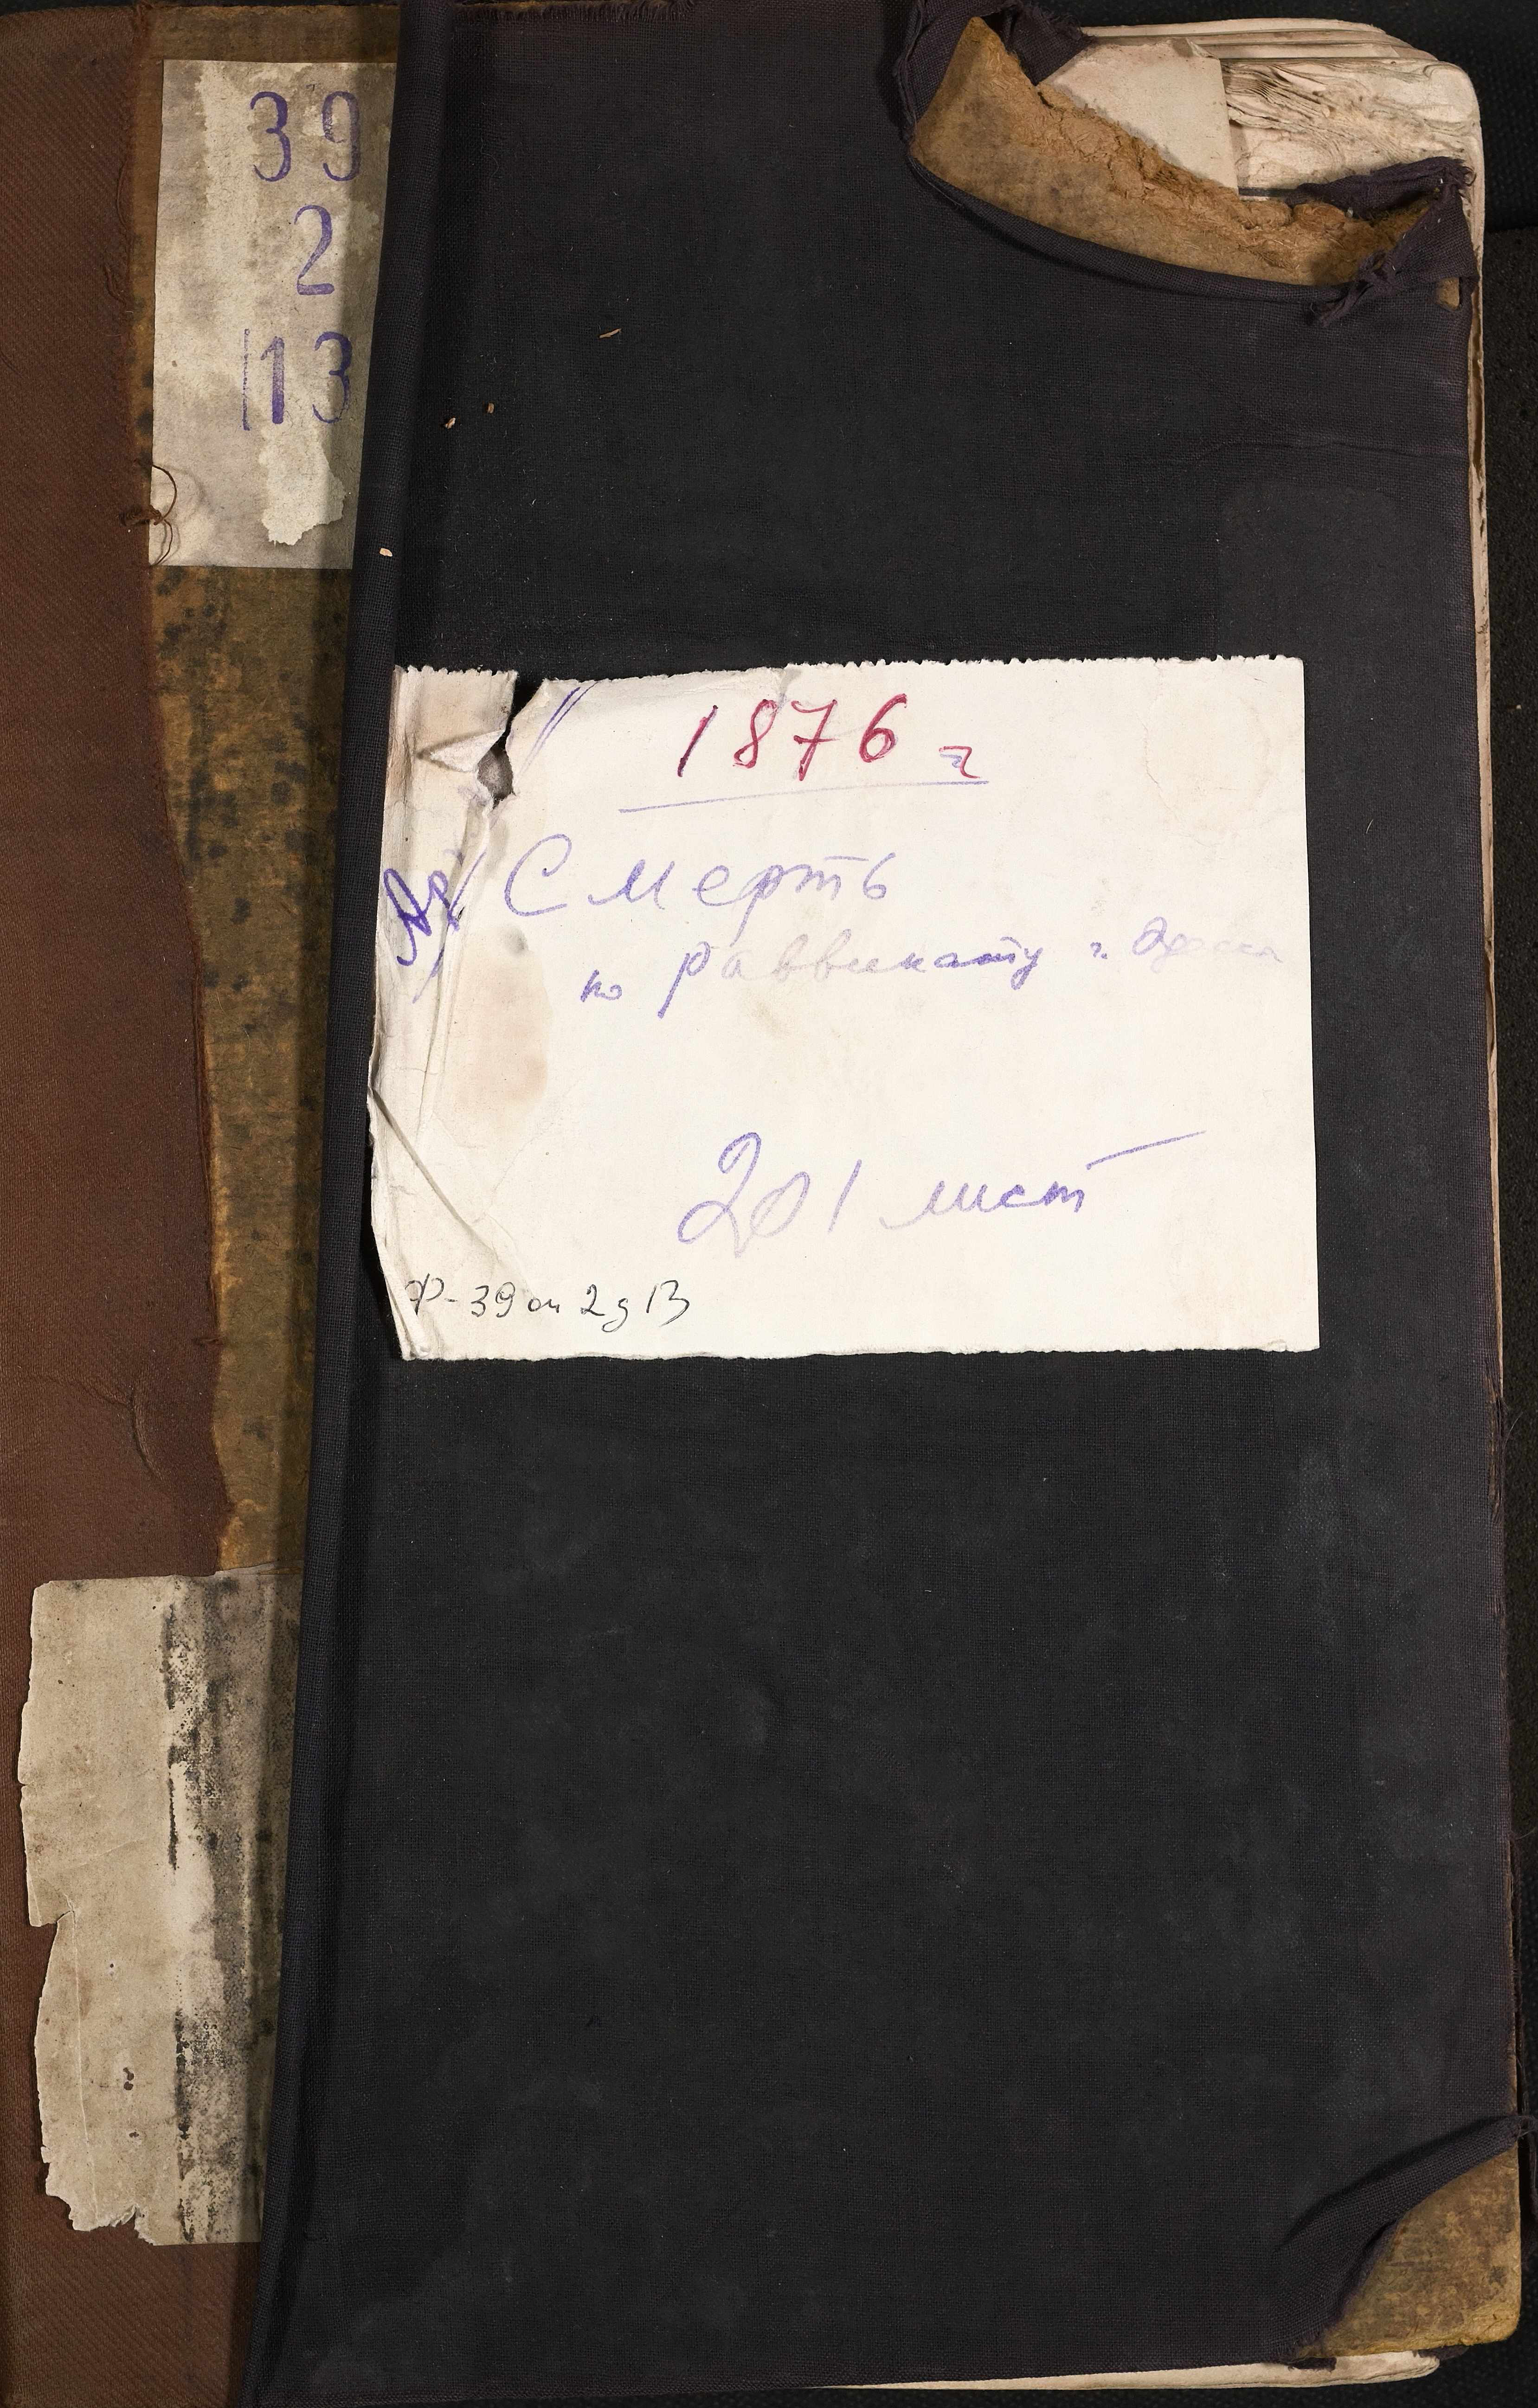 39
2
13
1876 г
Смерть
по раввинату г. Одесса
201 лист
Ф-39 оп 2 д 13